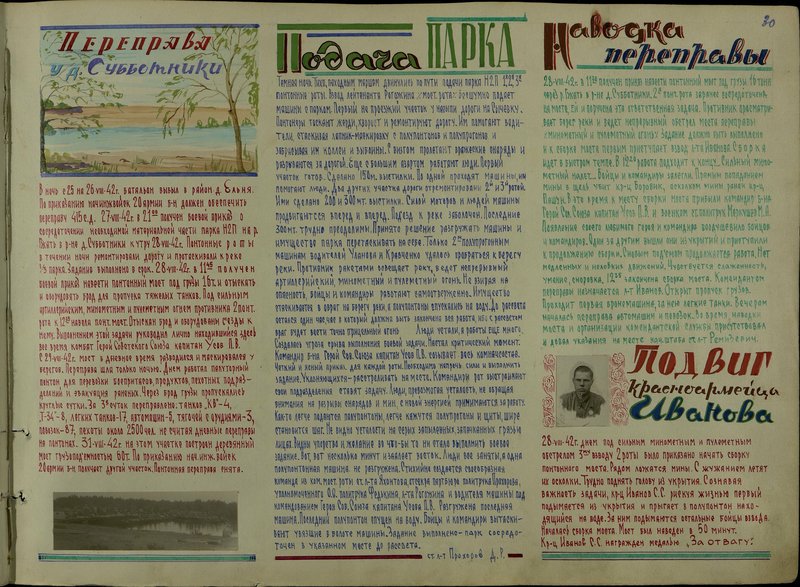 30
Переправа
у д. Субботники
В ночь с 25 на 26-VIII-42г. батальон вышел в район д. Ельня.
По приказанию начинжвойск 20 армии б-н должен обеспечить
переправу 415 с.д. 27-VIII-42г. в 21 00 получен боевой приказ о
сосредоточении необходимой материальной части парка Н2П на р.
Вязьь в р-не д. Субботники к утру 28-VIII-42г. Понтонные роты
в течении ночи ремонтировали дорогу и протаскивали к реке
1/2 парка. Задание выполнено в срок. 28-VIII-42г. в 11 00 получен
боевой приказ навести понтонный мост под грузы 16т. и отыскать
и оборудовать брод для пропуска тяжелых танков. Под сильным
артиллерийским, минометным и пулеметным огнем противника 2 понт.
рота к 12 00 навела понт. мост. Отыскан брод и оборудованы съезды к
нему. Выполнением этой задачи руководил лично находившийся здесь
все время комбат Герой Советского Союза капитан Усов П.В.
С 29-VIII-42г. мост в дневное время разводился и маскировался у
берегов. Переправа шла только ночью. Днем работал полуторный
понтон для перевозки боеприпасов, продуктов, пехотных подраз-
делений и эвакуация раненых. Через брод грузы пропускались
круглые сутки. За 3е суток переправлено: танков „КВ"-
Т-34-8, легких танков-17, автомашин-8, тягочей с орудиями-3,
повозок-87, пехоты около 2500 чел. не считая дневные переправы
на понтонах. 31-VIII-42г. на этом участке построен деревянный
мост грузоподъемностью 60т. По приказанию нач. инж. войск
20 армии б-н получает другой участок. Понтонная переправа снята.
Подача ПАРКА
Темная ночь. Тихо, походным маршом двинулись по пути подачи парка Н2П 1, 2, 3я
понтонные роты. Взвод лейтенанта Рогожина /мост. рота/ бесшумно подает
машины с парком. Первый не проезжий участок у насыпи дороги на Сычевку.
Понтонеры таскают жерди, хворост и ремонтируют дорогу. Им помогают води-
тели, стаскивая лапник-маскировку с полупонтонов и полупрогонов и
забрасывая им колеи и выбоины. С визгом пролетают вражеские снаряды и
разрываются за дорогой. Еще с большим азартом работают люди. Первый
участок готов. Сделано 150м. выстилки. По одной проходят машины, им
помогают люди. Два других участка дороги отремонтировали 2я и 3я ротой.
Ими сделано 200 и 300мт. выстилки. Силой моторов и людей машины
продвигаются вперед и вперед. Подъезд к реке заболочен. Последние
300мт. трудно преодолимы. Принято решение разгружать машины и
имущество парка перетаскивать на себе. Только 2м полупрогонным
машинам водителей Уланова и Кравченко удалось прорваться к берегу
реки. Противник ракетами освещает реку, ведет непрерывный
артиллерийский, минометный и пулеметный огонь. Не взирая на
опасность, бойцы и командиры работают самоотверженно. Имущество
укладывается в ворот на берегу реки, а полупонтоны опускались на воду. До рассвета
остался один час, уже в который должна быть закончена вся работа, но с рассветом
враг будет вести точно прицельный огонь. Люди устали, а работы еще много.
Создалась угроза срыва выполнения боевой задачи. Настал критический момент.
Командир б-на Герой Сов. Союза капитан Усов П.В. созывает весь комначсостав.
Четкий и ясный приказ для каждой роты. Необходимо напрячь силы и выполнить
задание. Уклоняющихся-расстреливать на месте. Командиры рот выстраивают
свои подразделения ставят задачу. Люди, превозмогая усталость, не обращая
внимания на разрывы снарядов и мин, с новой энергией принимаются за работу.
Как-то легче поднятся полупонтоны, легче кажутся полупрогоны и щиты, шире
становится шаг. Не видна усталость на серых запыленных, запачканных грязью
лицах. Видны упорство и желание во что-бы то ни стало выполнить боевое
задание. Вот, вот несколько минут и заалеет восток. Люди все заняты, а одна
полупонтонная машина не разгружена. Стихийно создается своеобразная
команда из ком. мост. роты ст. л-та Яхонтова, с-ктаря партбюро политрука Прохорова,
уполномоченного О.О. политрука Федькина, л-та Рогожина и водителя машины под
командованием Героя Сов. Союза капитана Усова П.В. Разгружена последняя
машина. Последний полупонтон опущен на воду. Бойцы и командиры вытаски-
вают увязшие в болоте машины. Задание выполнено-парк сосредо-
точен в указанном месте до рассвета.
ст. л-т Прохоров Д.Р.
Наводка
переправы
28-VIII-42г. в 11 00 получен приказ навести понтонный мост под грузы 16 тонн
через р. Вязьь в р-не д. Субботники. 2я понт. рота заранее сосредоточена
на месте. Ей и поручена эта ответственная задача. Противник просматри-
вает берег реки и ведет непрерывный обстрел места переправы
/минометный и пулеметный огонь/. Задание должно быть выполнено
и к сборке моста первый приступает взвод л-та Иванова. Сборка
идет в быстром темпе. В 12 00 работа подходит к концу. Сильный мино-
метный налет. Бойцы и командиры залегли. Прямым попаданием
мины в щель убит кр-ц Боровик, осколком мины ранен кр-ц
Пащук. В это время к месту сборки моста прибыли командир б-на
Герой Сов. Союза капитан Усов П.В. и военком ст. политрук Меркушев М.А.
Появление своего любимого героя и командира воодушевило бойцов
и командиров. Один за другим вышли они из укрытий и приступили
к продолжению сборки. Снова под огнем продолжается работа. Нет
медленных и неловких движений. Чувствуется слаженность,
умение, сноровка. 12 30 закончена сборка моста. Комендантом
переправы назначается л-т Иванов. Открыт пропуск грузов.
Проходит первая бронемашина, за нею легкие танки. Вечером
началась переправа автомашин и повозок. Во время наводки
моста и организации комендантской службы присутствовал
и давал указания на месте нач. штаба ст. л-т Ремизевич.
Подвиг
красноармейца
Иванова
28-VIII-42г. днем под сильным минометным и пулеметным
обстрелом 3му взводу 2 роты было приказано начать сборку
понтонного моста. Рядом ложатся мины. С жужжанием летят
их осколки. Трудно поднять голову из укрытия. Сознавая
важность задачи, кр-ц Иванов С.С. рискуя жизнью первый
подымается из укрытия и прыгает в полупонтон нахо-
дящийся на воде. За ним подымаются остальные бойцы взвода.
Началась сборка моста. Мост был наведен в 50 минут.
Кр-ц Иванов С.С. награжден медалью „За отвагу".